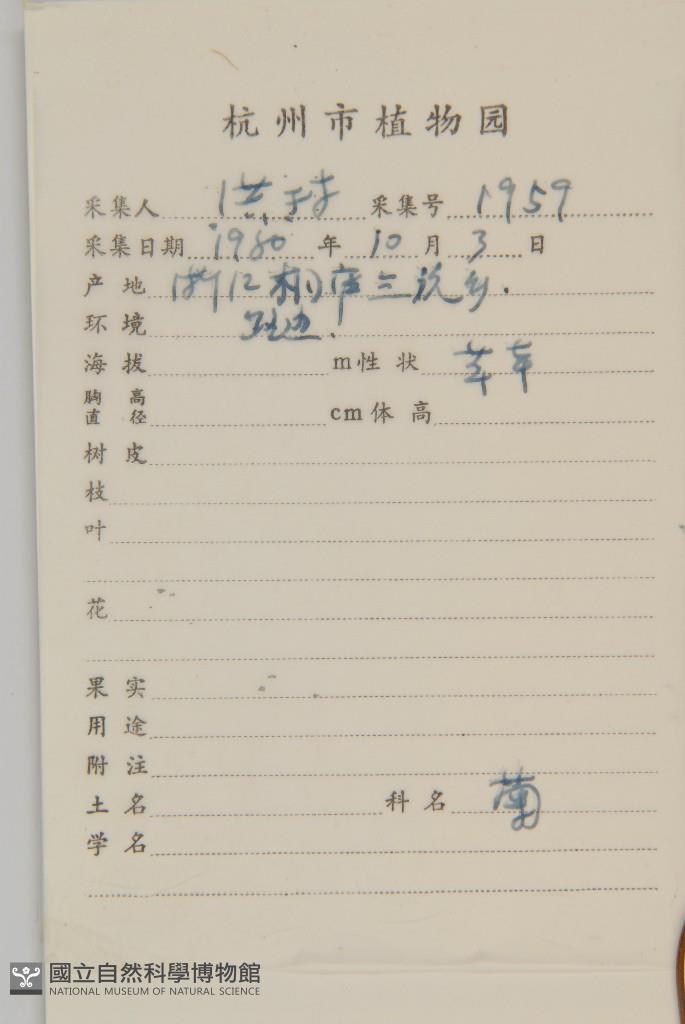 杭州市植物园
采集人 洪林 采集号 1959
采集日期 1980 年 10 月 3 日
产地 浙江桐庐三说乡.
环境 边.
海拔 m性状 草
胸高直径 cm体高
树皮
枝
叶
花
果实
用途
附注
土名 科名 菊
学名
國立自然科學博物館
NATIONAL MUSEUM OF NATURAL SCIENCE